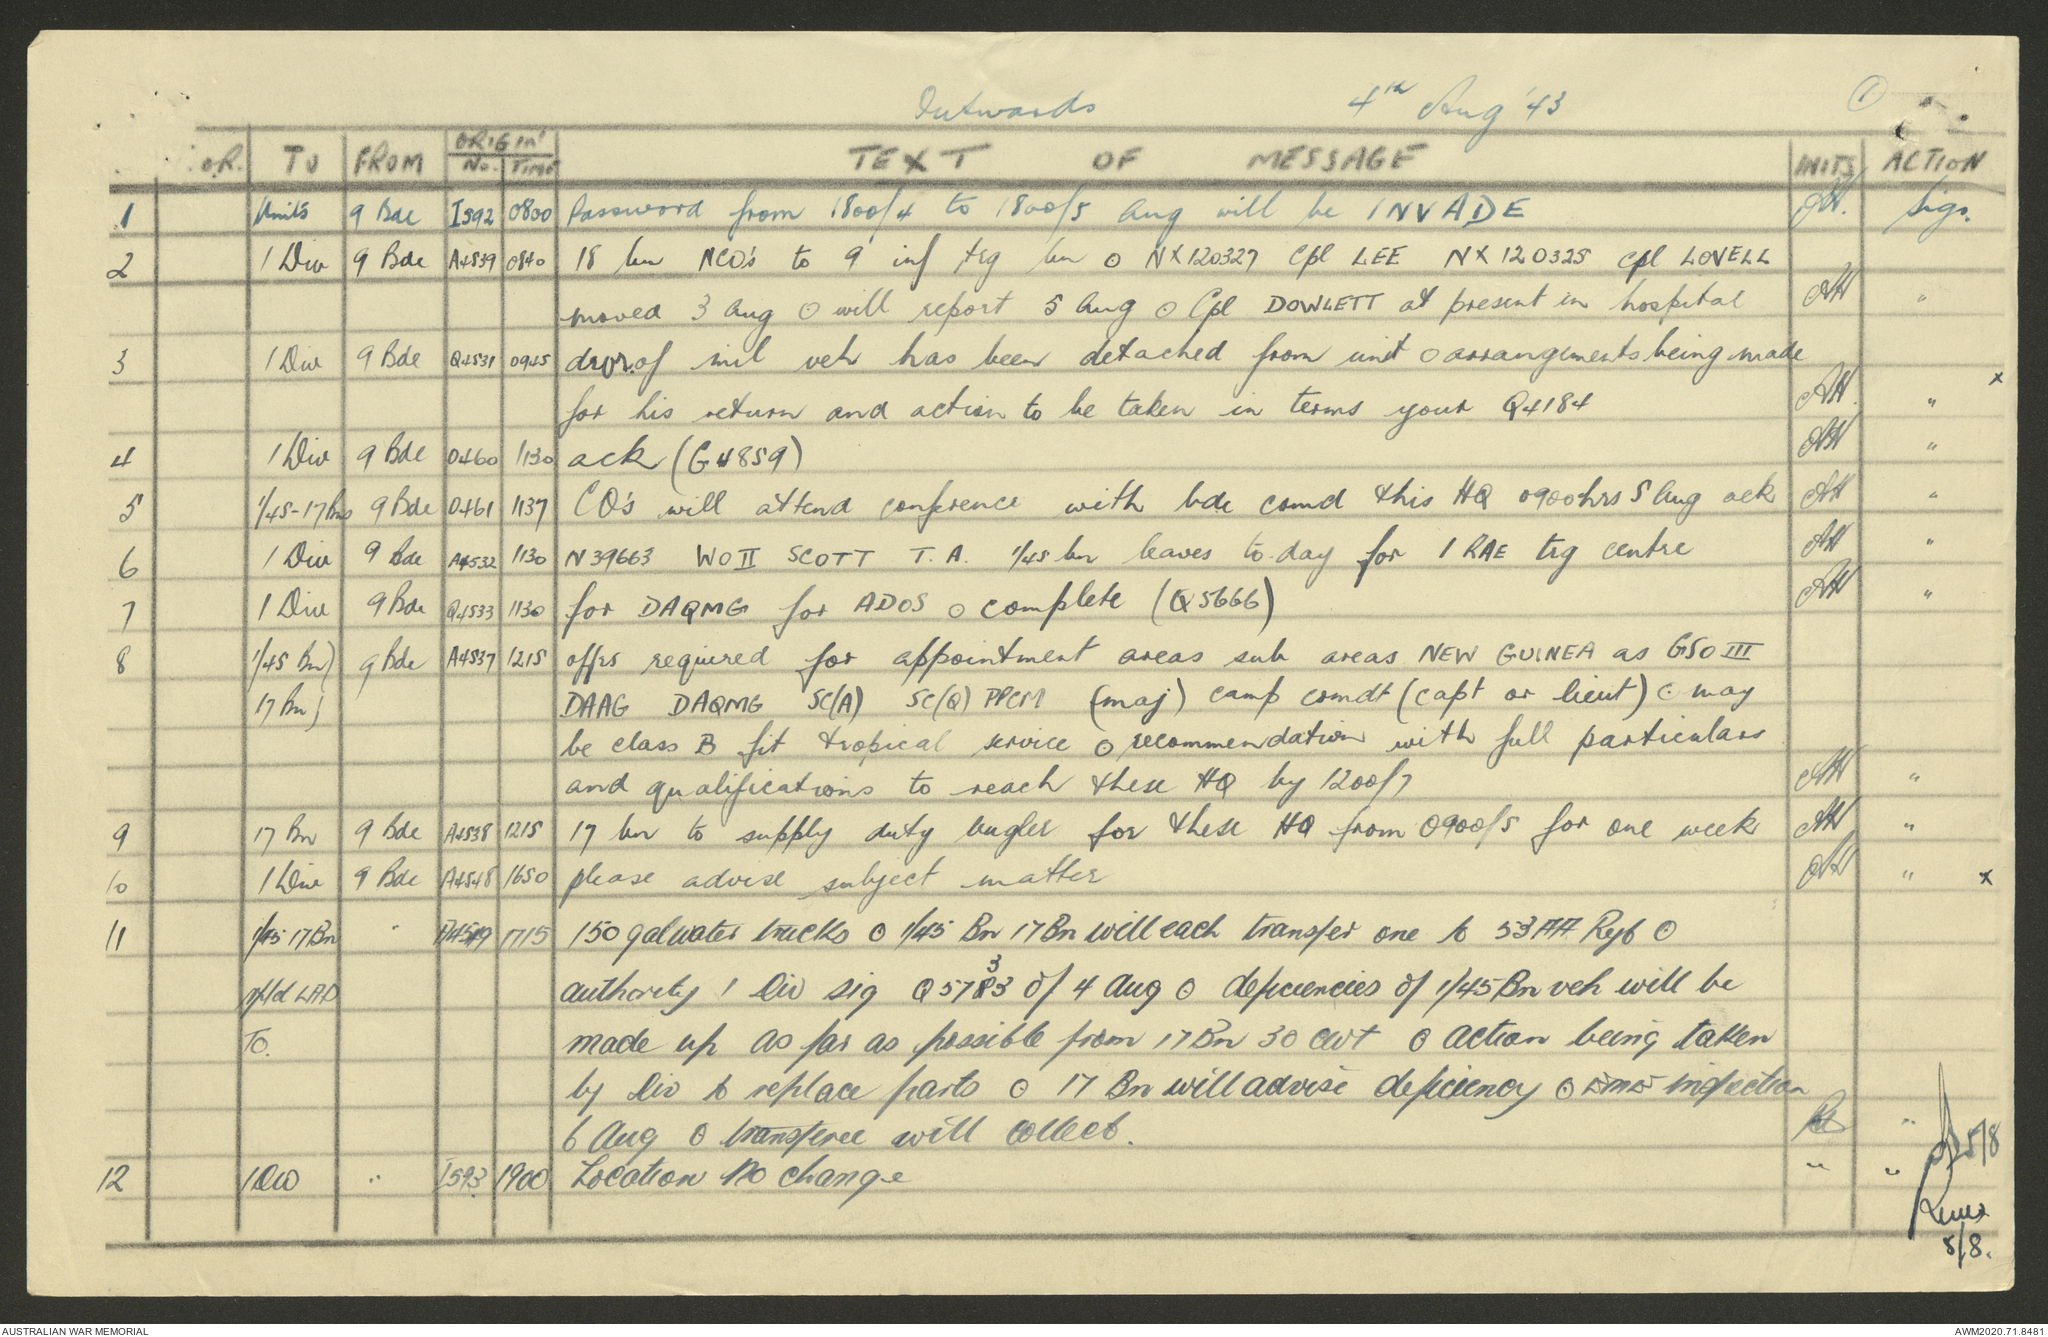 Outwards 4th Aug '43 1
O.R. TO FROM ORIGIN' No. TIME TEXT OF MESSAGE INITS ACTION
1 Units 9 Bde I592 0800 Password from 1800/4 to 1800/5 Aug will be INVADE AH. Sigs.
2 1 Div 9 Bde A4539 0840 18 bn NCO's to 9 inf trg bn o NX120327 Cpl LEE NX120325 Cpl LOVELL
moved 3 Aug o will report 5 Aug o Cpl DOWLETT at present in hospital AH "
3 1 Div 9 Bde Q4531 0945 drvr. of mil veh has been detached from unit o arrangements being made
for his return and action to be taken in terms your Q4184 AH. " x
4 1 Div 9 Bde O460 1130 ack (G4859) AH "
5 1/45-17 Bns 9 Bde O461 1137 CO's will attend conference with bde comd this HQ 0900hrs 5 Aug ack AH "
6 1 Div 9 Bde A4532 1130 N39663 WO II SCOTT T. A. 1/45 bn leaves to-day for 1 RAE trg centre AH "
7 1 Div 9 Bde Q4533 1130 for DAQMG for ADOS o complete (Q5666) AH "
8 1/45 Bn) 9 Bde A4537 1215 offrs required for appointment areas sub areas NEW GUINEA as GSO III
17 Bn) DAAG DAQMG SC(A) SC(Q) (maj) camp comdt (capt or lieut) o may
be class B fit tropical service o recommendation with full particulars
and qualifications to reach these HQ by 1200/7 AH "
9 17 Bn 9 Bde A4538 1215 17 bn to supply duty bugler for these HQ from 0900/5 for one week AH "
10 1 Div 9 Bde A4548 1650 please advise subject matter AH " x
11 1/45 17 Bn " 1715 150 gal water trucks o 1/45 Bn 17 Bn will each transfer one to 53 AA Regt o
rptd LAD authority 1 Div sig Q5783 3 of 4 Aug o deficiencies of 1/45 Bn veh will be
TO. made up as far as possible from 17 Bn 30 cwt o action being taken
by Div to replace parts o 17 Bn will advise deficiency o inspection
6 Aug o transferee will collect. "
12 1 Div " I593 1900 Location No change " "
5/8
5/8.
AUSTRALIAN WAR MEMORIAL AWM2020.71.8481